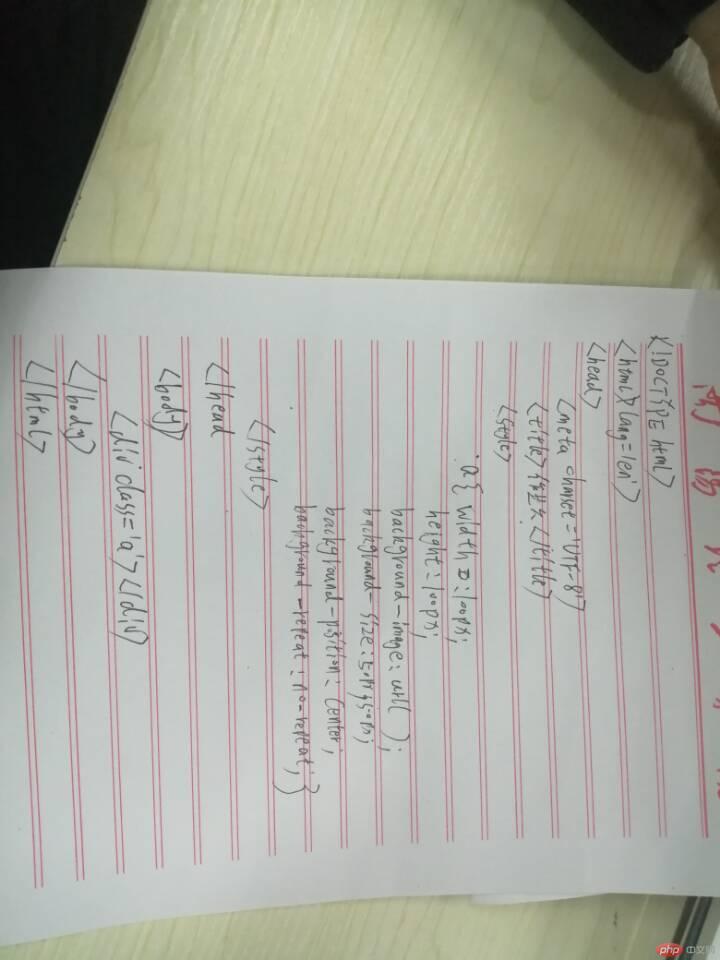 <!DOCTYPE html>
<html> lang='en'>
<head>
<meta charset='UTF-8'>
<title></title>
<style>
.a{ width:100px;
height:100px;
background-image:url( );
background-size:50px,50px;
background-position:center;
background-repeat:no-repeat;}
</style>
</head
<body>
<div class='a'></div>
</body>
</html>
php 中文网